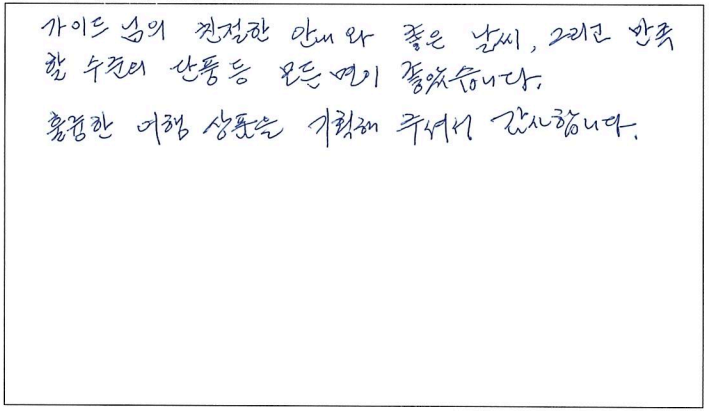 가이드 님의 친절한 안내와 좋은 날씨, 그리고 만족
할 수준의 단풍등 모든 면이 좋았습니다.
훌륭한 여행 상품을 기획해 주셔서 감사합니다.